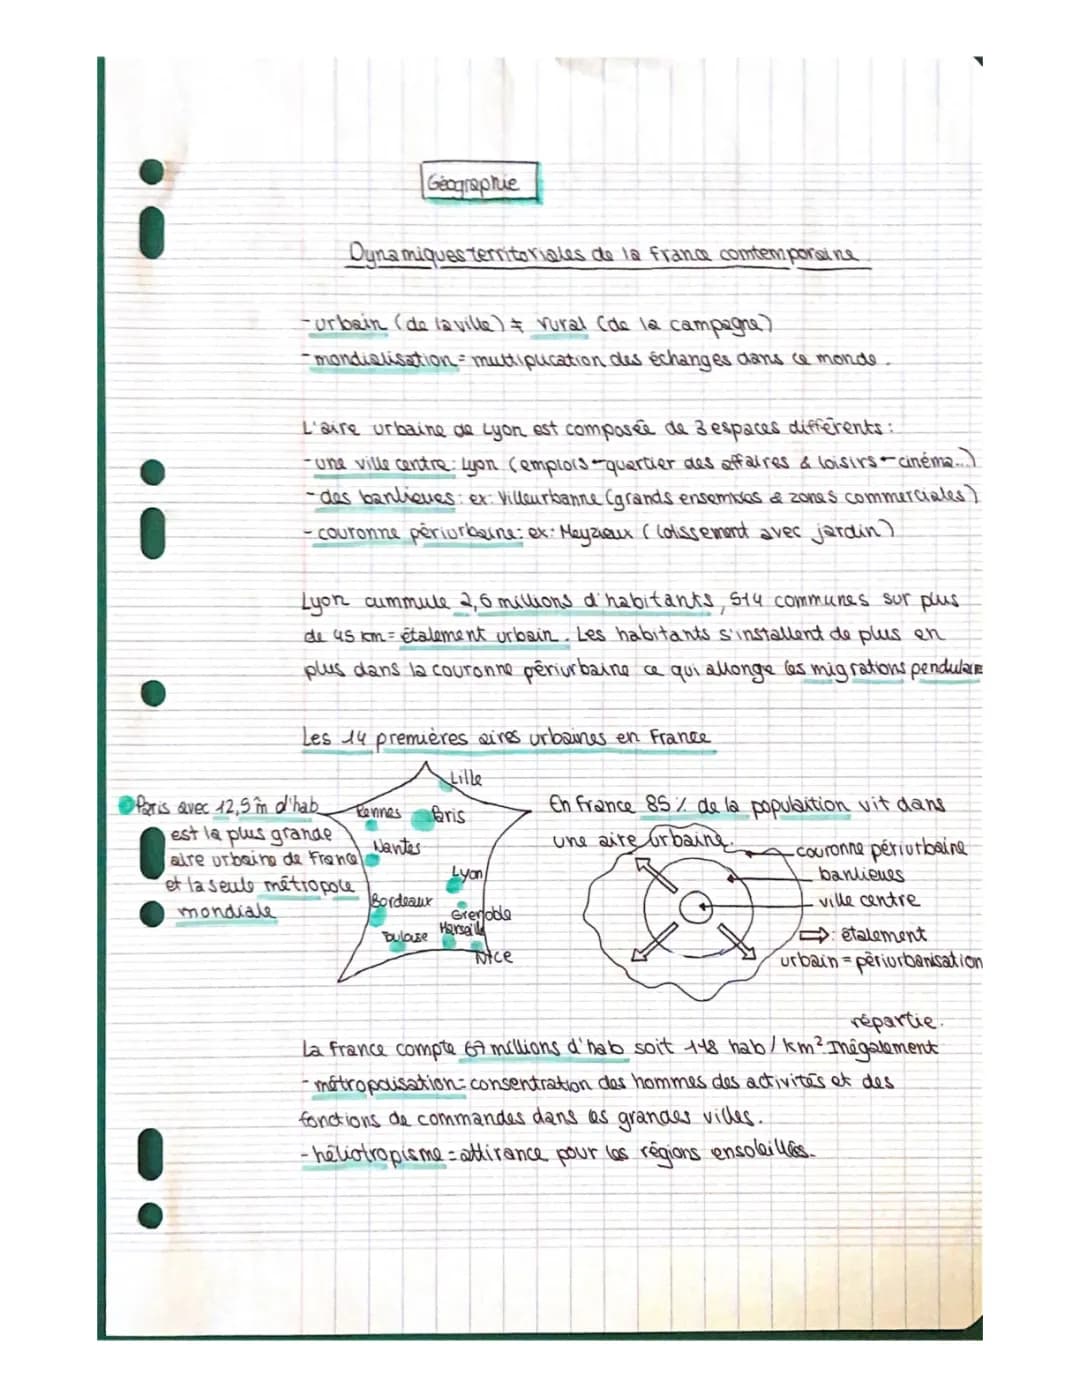 Géographie
Dynamiques territoriales de la France comtemporaine
- urbain (de la ville) ≠ rural (de la campagne)
- mondialisation = multiplication des échanges dans le monde.
L'aire urbaine de Lyon est composée de 3 espaces différents :
- une ville centre : Lyon (emplois - quartier des affaires & loisirs - cinéma...)
- des banlieues : ex : Villeurbanne (grands ensembles & zones commerciales)
- couronne périurbaine : ex : Meyzieux (lotissement avec jardin)
Lyon cummule 2,6 millions d'habitants, 514 communes sur plus
de 45 km = étalement urbain. Les habitants s'installent de plus en
plus dans la couronne périurbaine ce qui allonge les migrations pendulaires
Les 14 premières aires urbaines en France
Lille
Rennes
Paris
Nantes
Lyon
Bordeaux
Grenoble
Marseille
Toulouse
Nice
Paris avec 12,5 m d'hab
est la plus grande
aire urbaine de France
et la seule métropole
mondiale
En France 85 % de la populaition vit dans
une aire urbaine.
couronne périurbaine
banlieues
ville centre
⇒ : étalement
urbain = périurbanisation
répartie.
La France compte 67 millions d'hab soit 118 hab / km². Inégalement
- métropolisation = consentration des hommes des activités et des
fonctions de commandes dans les grandes villes.
- héliotropisme = attirance pour les régions ensoleillés.